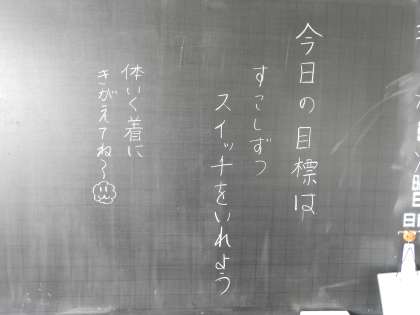 今日の目標は
すこしずつ
スイッチをいれよう
体いく着に
きがえてね〜
曜日
日